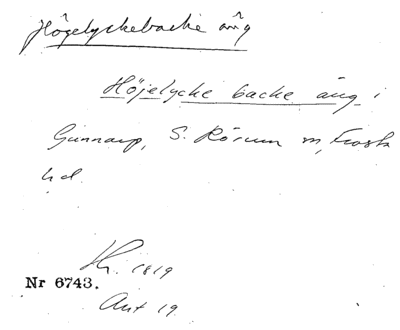 Högelyckebacke äng
Höjelycke backe äng i
Gunnarp, S. Rörum sn, Frosta
hd.
1819
Nr 6743.
Akt 19